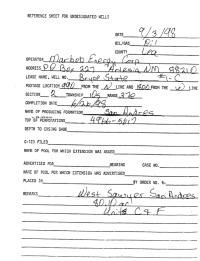 REFERENCE SHEET FOR UNDESIGNATED WELLS
DATE 9/3/98
OIL/GAS Oil
COUNTY Lea
OPERATOR Marbob Energy Corp
ADDRESS PO Box 227 Artesia NM 88210
LEASE NAME, WELL NO. State #1-C
FOOTAGE LOCATION FROM THE N LINE AND FROM THE W LINE
SECTION 2 RANGE 37E
COMPLETION DATE 6/26/98
NAME OF PRODUCING FORMATION San Andres
TOP OF PERFORATIONS
DEPTH TO CASING SHOE
C-123 FILED
NAME OF POOL FOR WHICH EXTENSION WAS ASKED
ADVERTISED FOR HEARING CASE NO.
NAME OF POOL FOR WHICH EXTENSION WAS ADVERTISED
PLACED IN BY ORDER NO. R-
REMARKS West Sawyer San Andres
Units C & F